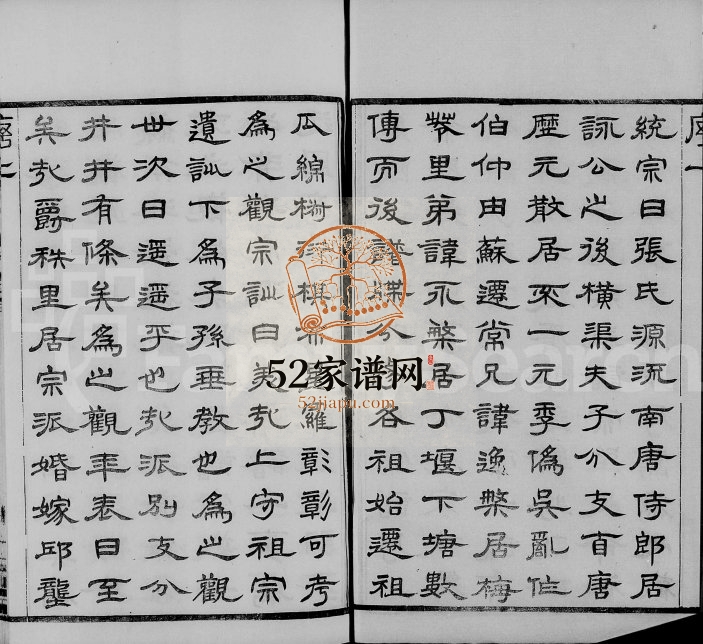 序一
統宗曰張氏源流南唐侍郎居
詠公之後橫渠夫子分支自唐
歷元散居不一元季偽吳亂作
伯仲由蘇遷常兄諱逸槃居梅
里弟諱永槃居丁堰下塘數
傳而後譜牒分各祖始遷祖
瓜綿棋布羅彰彰可考
為之觀宗訓曰美哉上守祖宗
遺訓下為子孫垂教也為之觀
世次曰遥遥乎也哉派別支分
井井有條矣為之觀年表曰至
矣哉爵秩里居宗派婚嫁邱壟
序二
52家谱网
52jiapu.com